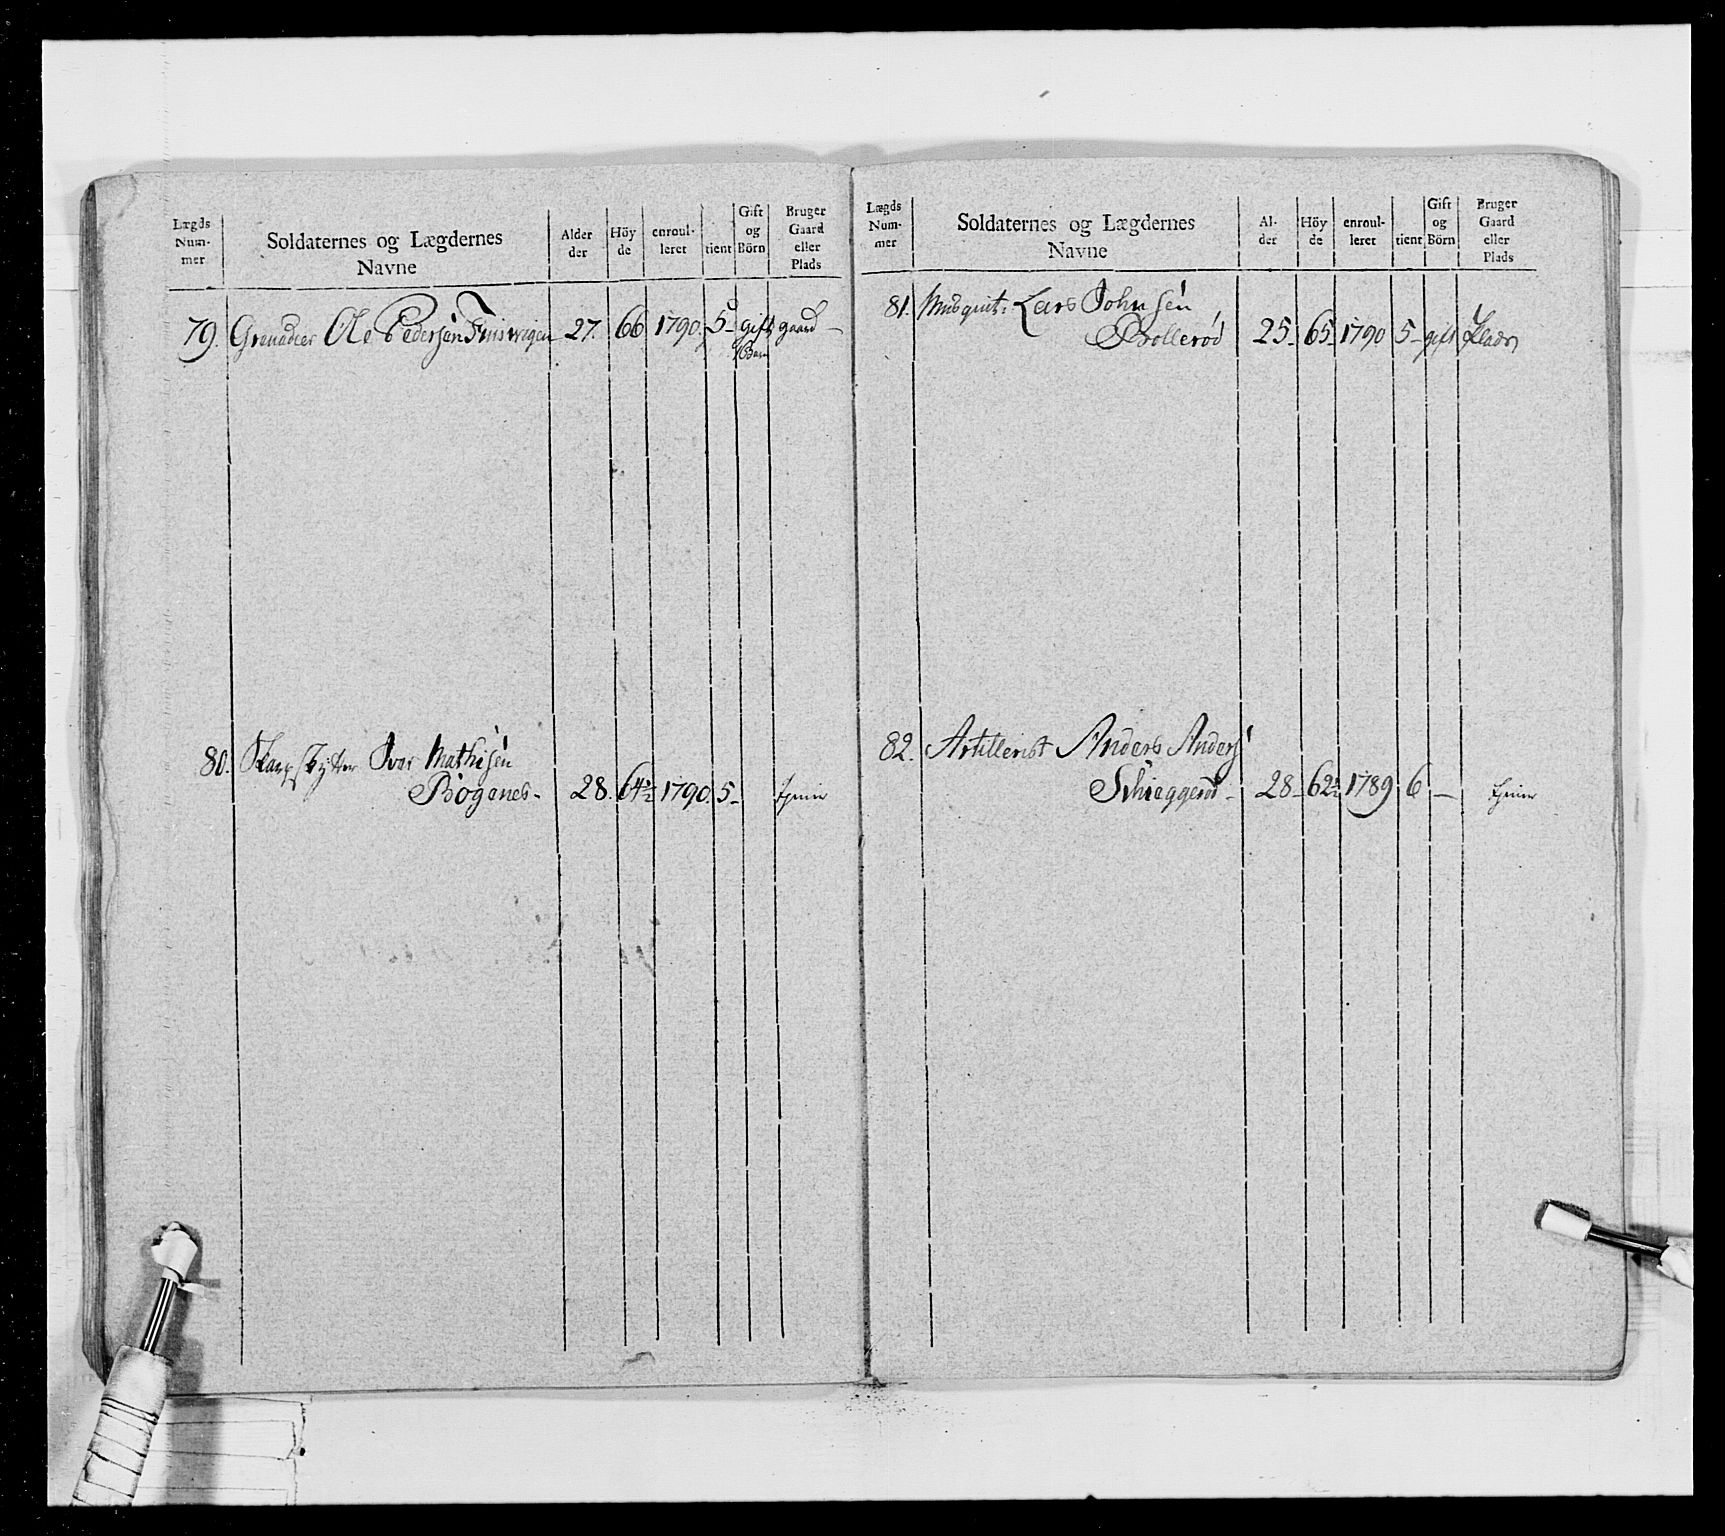 Lægds Nummer | Soldaternes og Lægdernes Navne | Alder der | Höyde | enroulleret | tient | Gift og Börn | Bruger Gaard eller Plads
79. Grenadeer Ole Pedersen 27. 66 1790. 5- gift gaard-
1 Barn
80. Skarpskytter Iver Mathisen
Bogenes- 28. 64½ 1790. 5- tjener
Lægds Nummer | Soldaternes og Lægdernes Navne | Alder | Höyde | enroulleret | tient | Gift og Börn | Bruger Gaard eller Plads
81. Musquit: Lars Johnsen
Brollerød 25- 65- 1790 5- gift Plads
82. Artillerist Anders Anders
Schieggerød- 28- 62½ 1789 6 - tjener